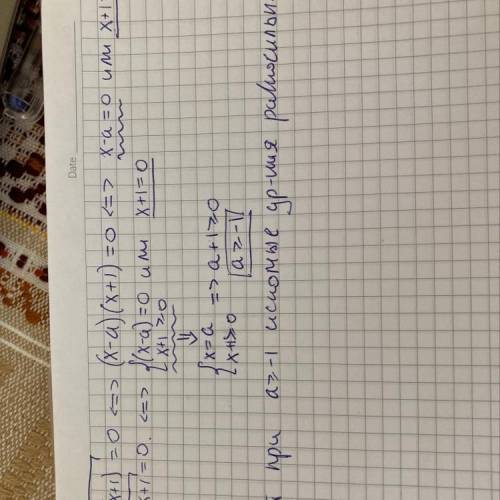 Date
x+1) = 0 <=> (x-a)(x+1) = 0 <=> x-a=0 или x+1
x+1 = 0. <=> { (x-a)=0 или x+1=0
x+1 ≥ 0
⇓
{ x=a => a+1≥0
x+1≥0 a ≥ -1
при a ≥ -1 искомые ур-ния равносильн